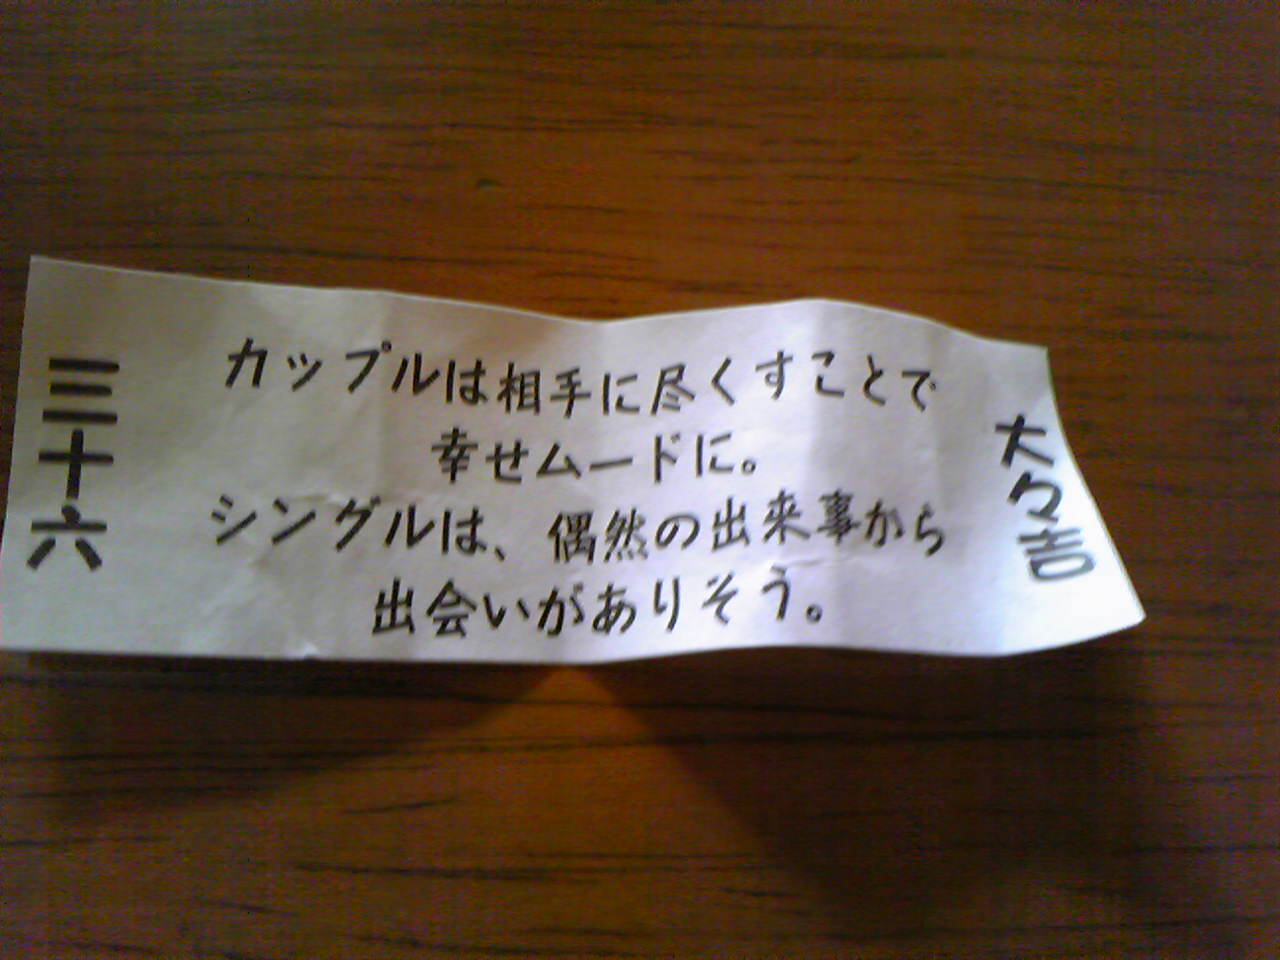 大々吉
カップルは相手に尽くすことで
幸せムードに。
シングルは、偶然の出来事から
出会いがありそう。
三十六